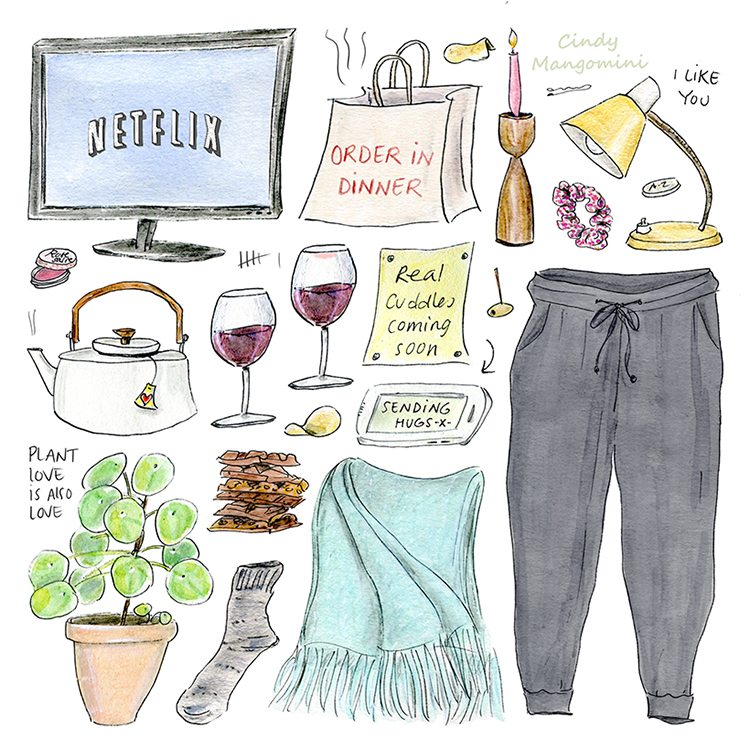 Cindy
Mangomini
I LIKE
YOU
NETFLIX
ORDER IN
DINNER
A-Z
Real
Cuddles
coming
soon
SENDING
HUGS-X-
PLANT
LOVE
is ALSO
LOVE